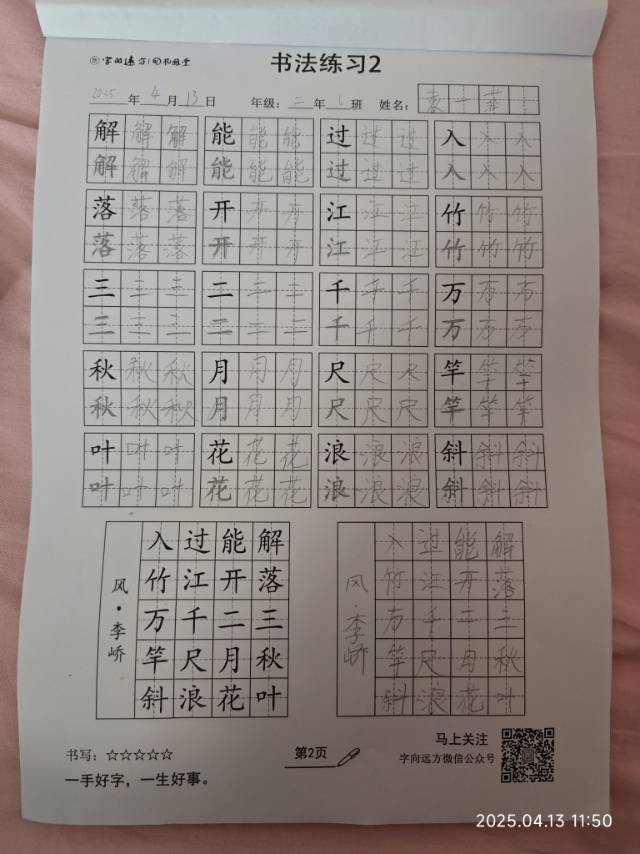 书法练习2
2025年4月13日 年级：二年 班 姓名：
解解解 能能能 过过过 入入入
解解解 能能能 过过过 入入入
落落落 开开开 江江江 竹竹竹
落落落 开开开 江江江 竹竹竹
三三三 二二二 千千千 万万万
三三三 二二二 千千千 万万万
秋秋秋 月月月 尺尺尺 竿竿竿
秋秋秋 月月月 尺尺尺 竿竿竿
叶叶叶 花花花 浪浪浪 斜斜斜
叶叶叶 花花花 浪浪浪 斜斜斜
风·李峤
解落三秋叶
能开二月花
过江千尺浪
入竹万竿斜
风·李峤
解落三秋叶
能开二月花
过江千尺浪
入竹万竿斜
书写：☆☆☆☆☆
一手好字，一生好事。
第2页
马上关注
字向远方微信公众号
2025.04.13 11:50